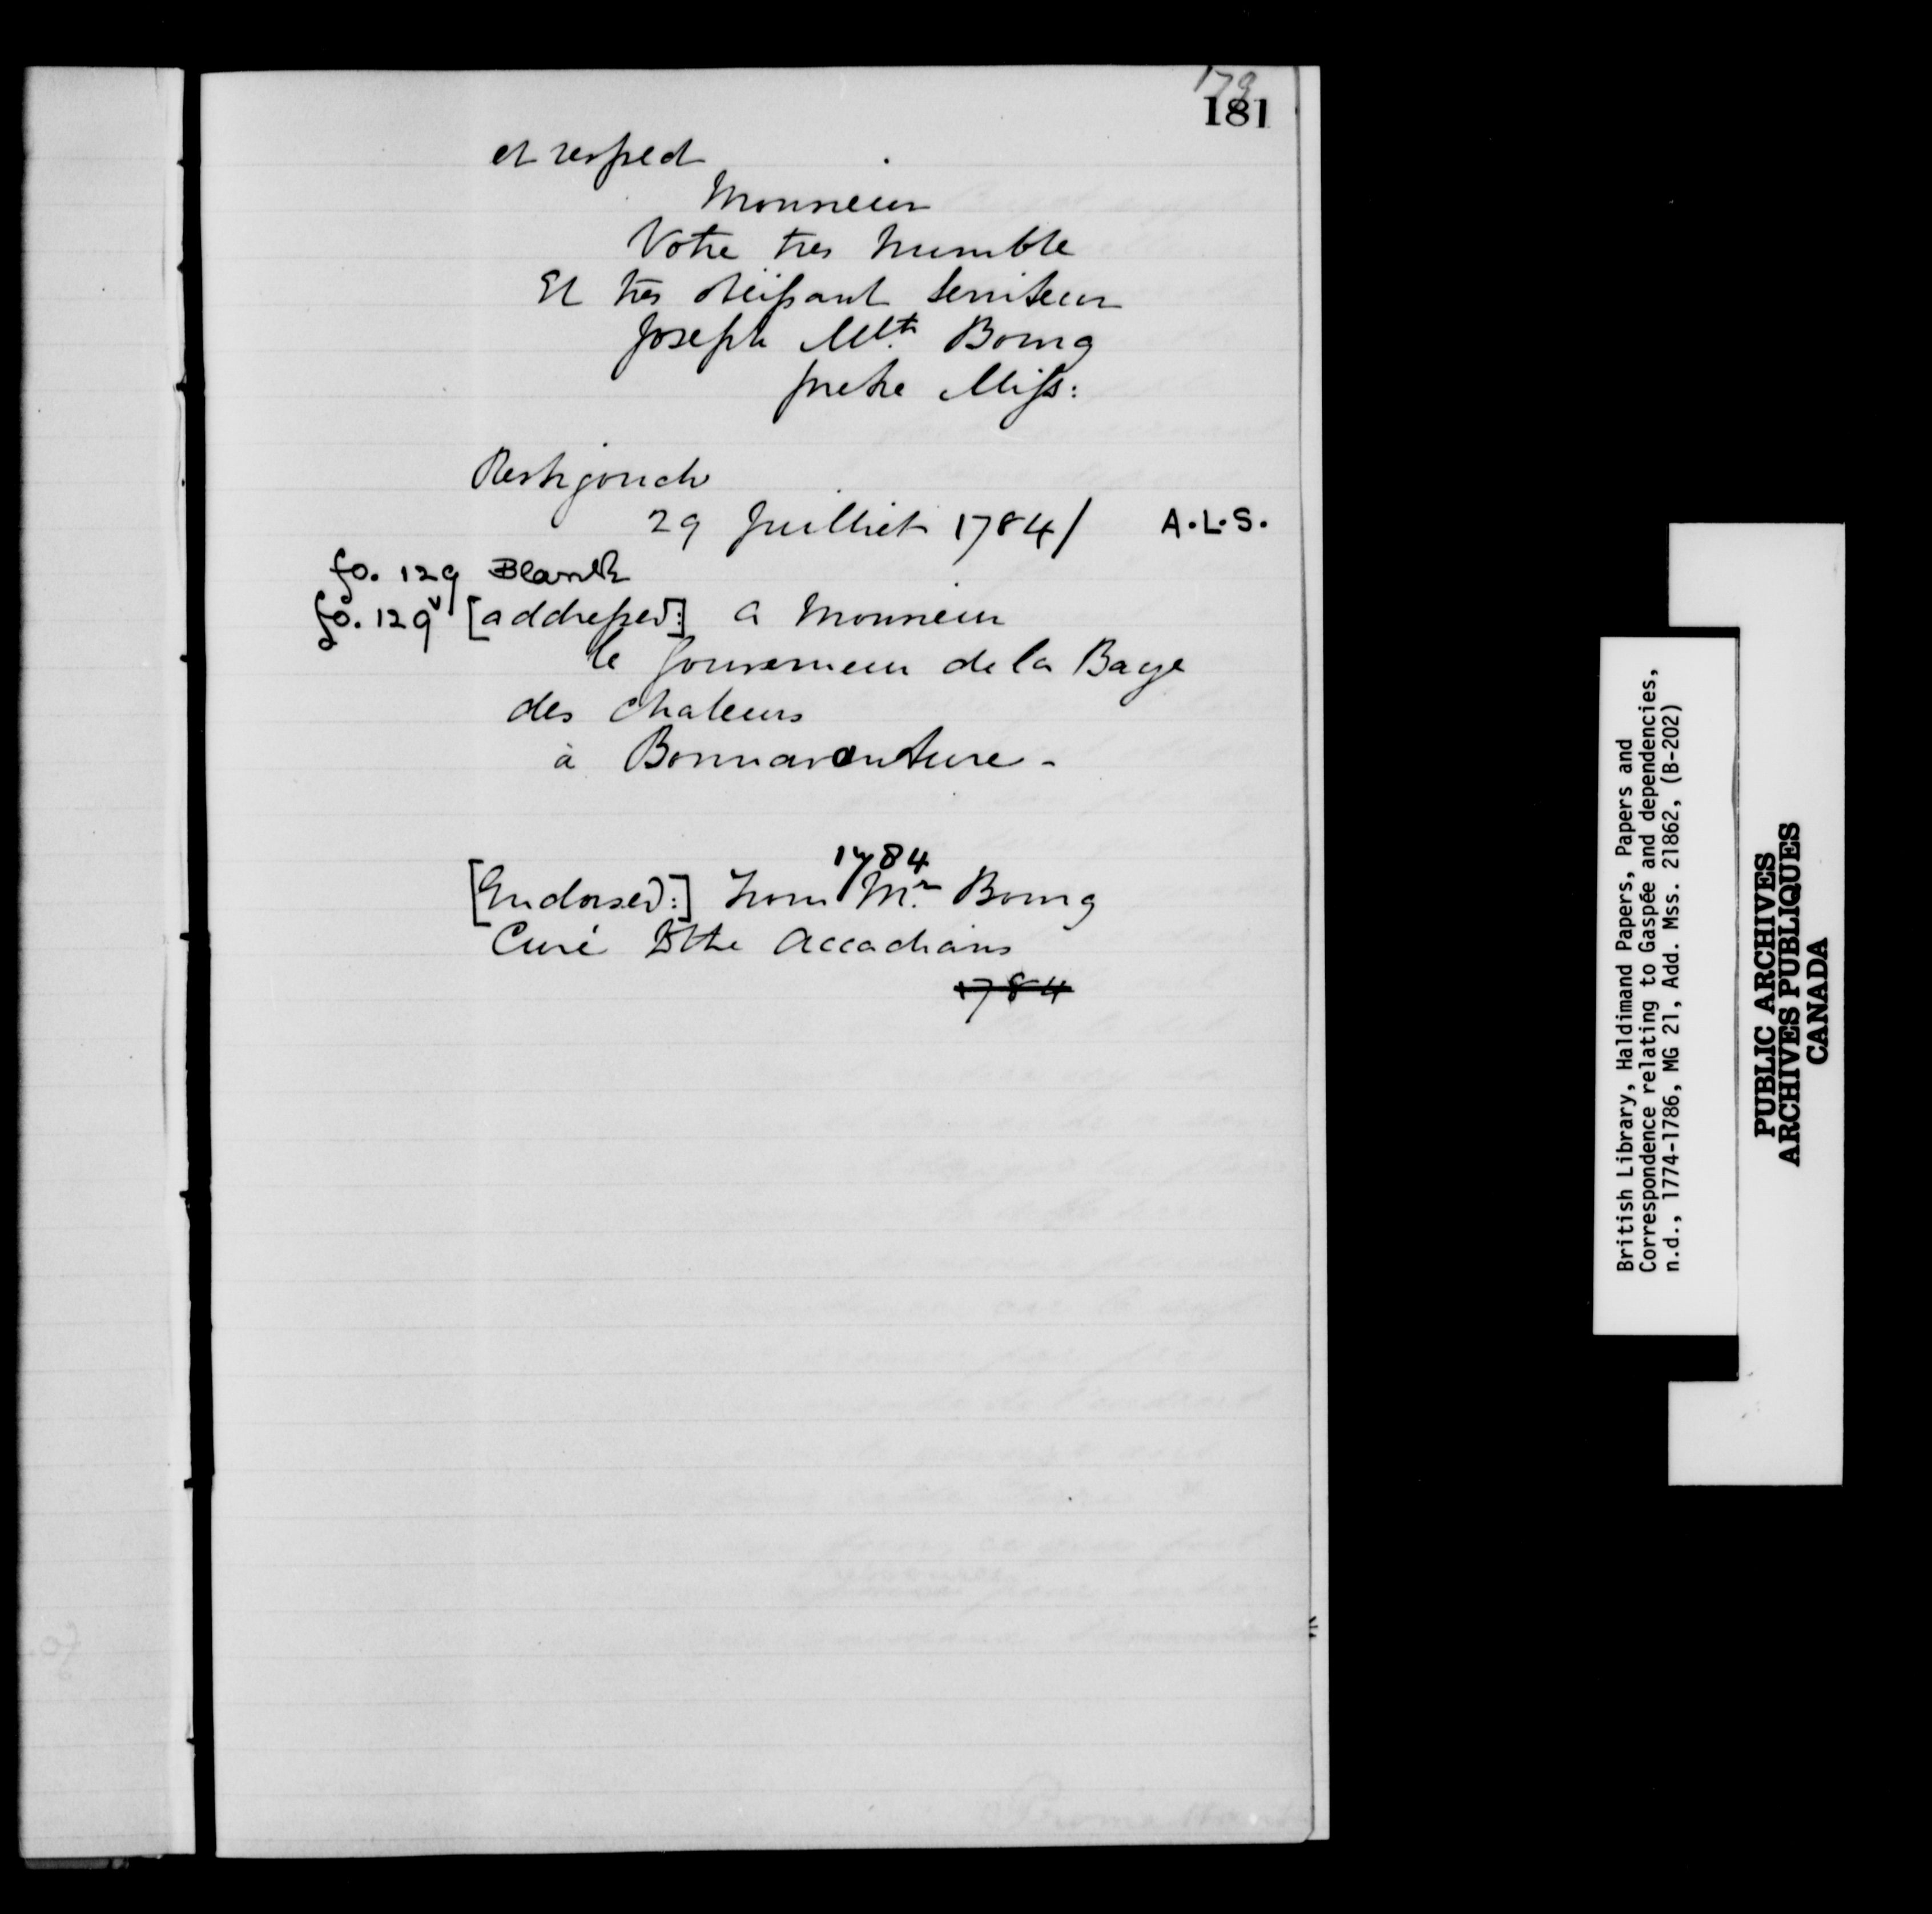 179
181
et respect
Monsieur
Votre tres humble
Et très obéissant serviteur
Joseph Mth. Bourg
pretre Miss:
Restigouch
29 Juilliet 1784/ A.L.S.
fo. 129 Blank
fo. 129v [addressed:] a Monsieur
le Gouverneur de la Baye
des Chaleurs
à Bonnaventure -
1784
[Endorsed:] from Mr. Bourg
Curé to the Accadians
1784
British Library, Haldimand Papers, Papers and
Correspondence relating to Gaspée and dependencies,
n.d., 1774-1786, MG 21, Add. Mss. 21862, (B-202)
PUBLIC ARCHIVES
ARCHIVES PUBLIQUES
CANADA